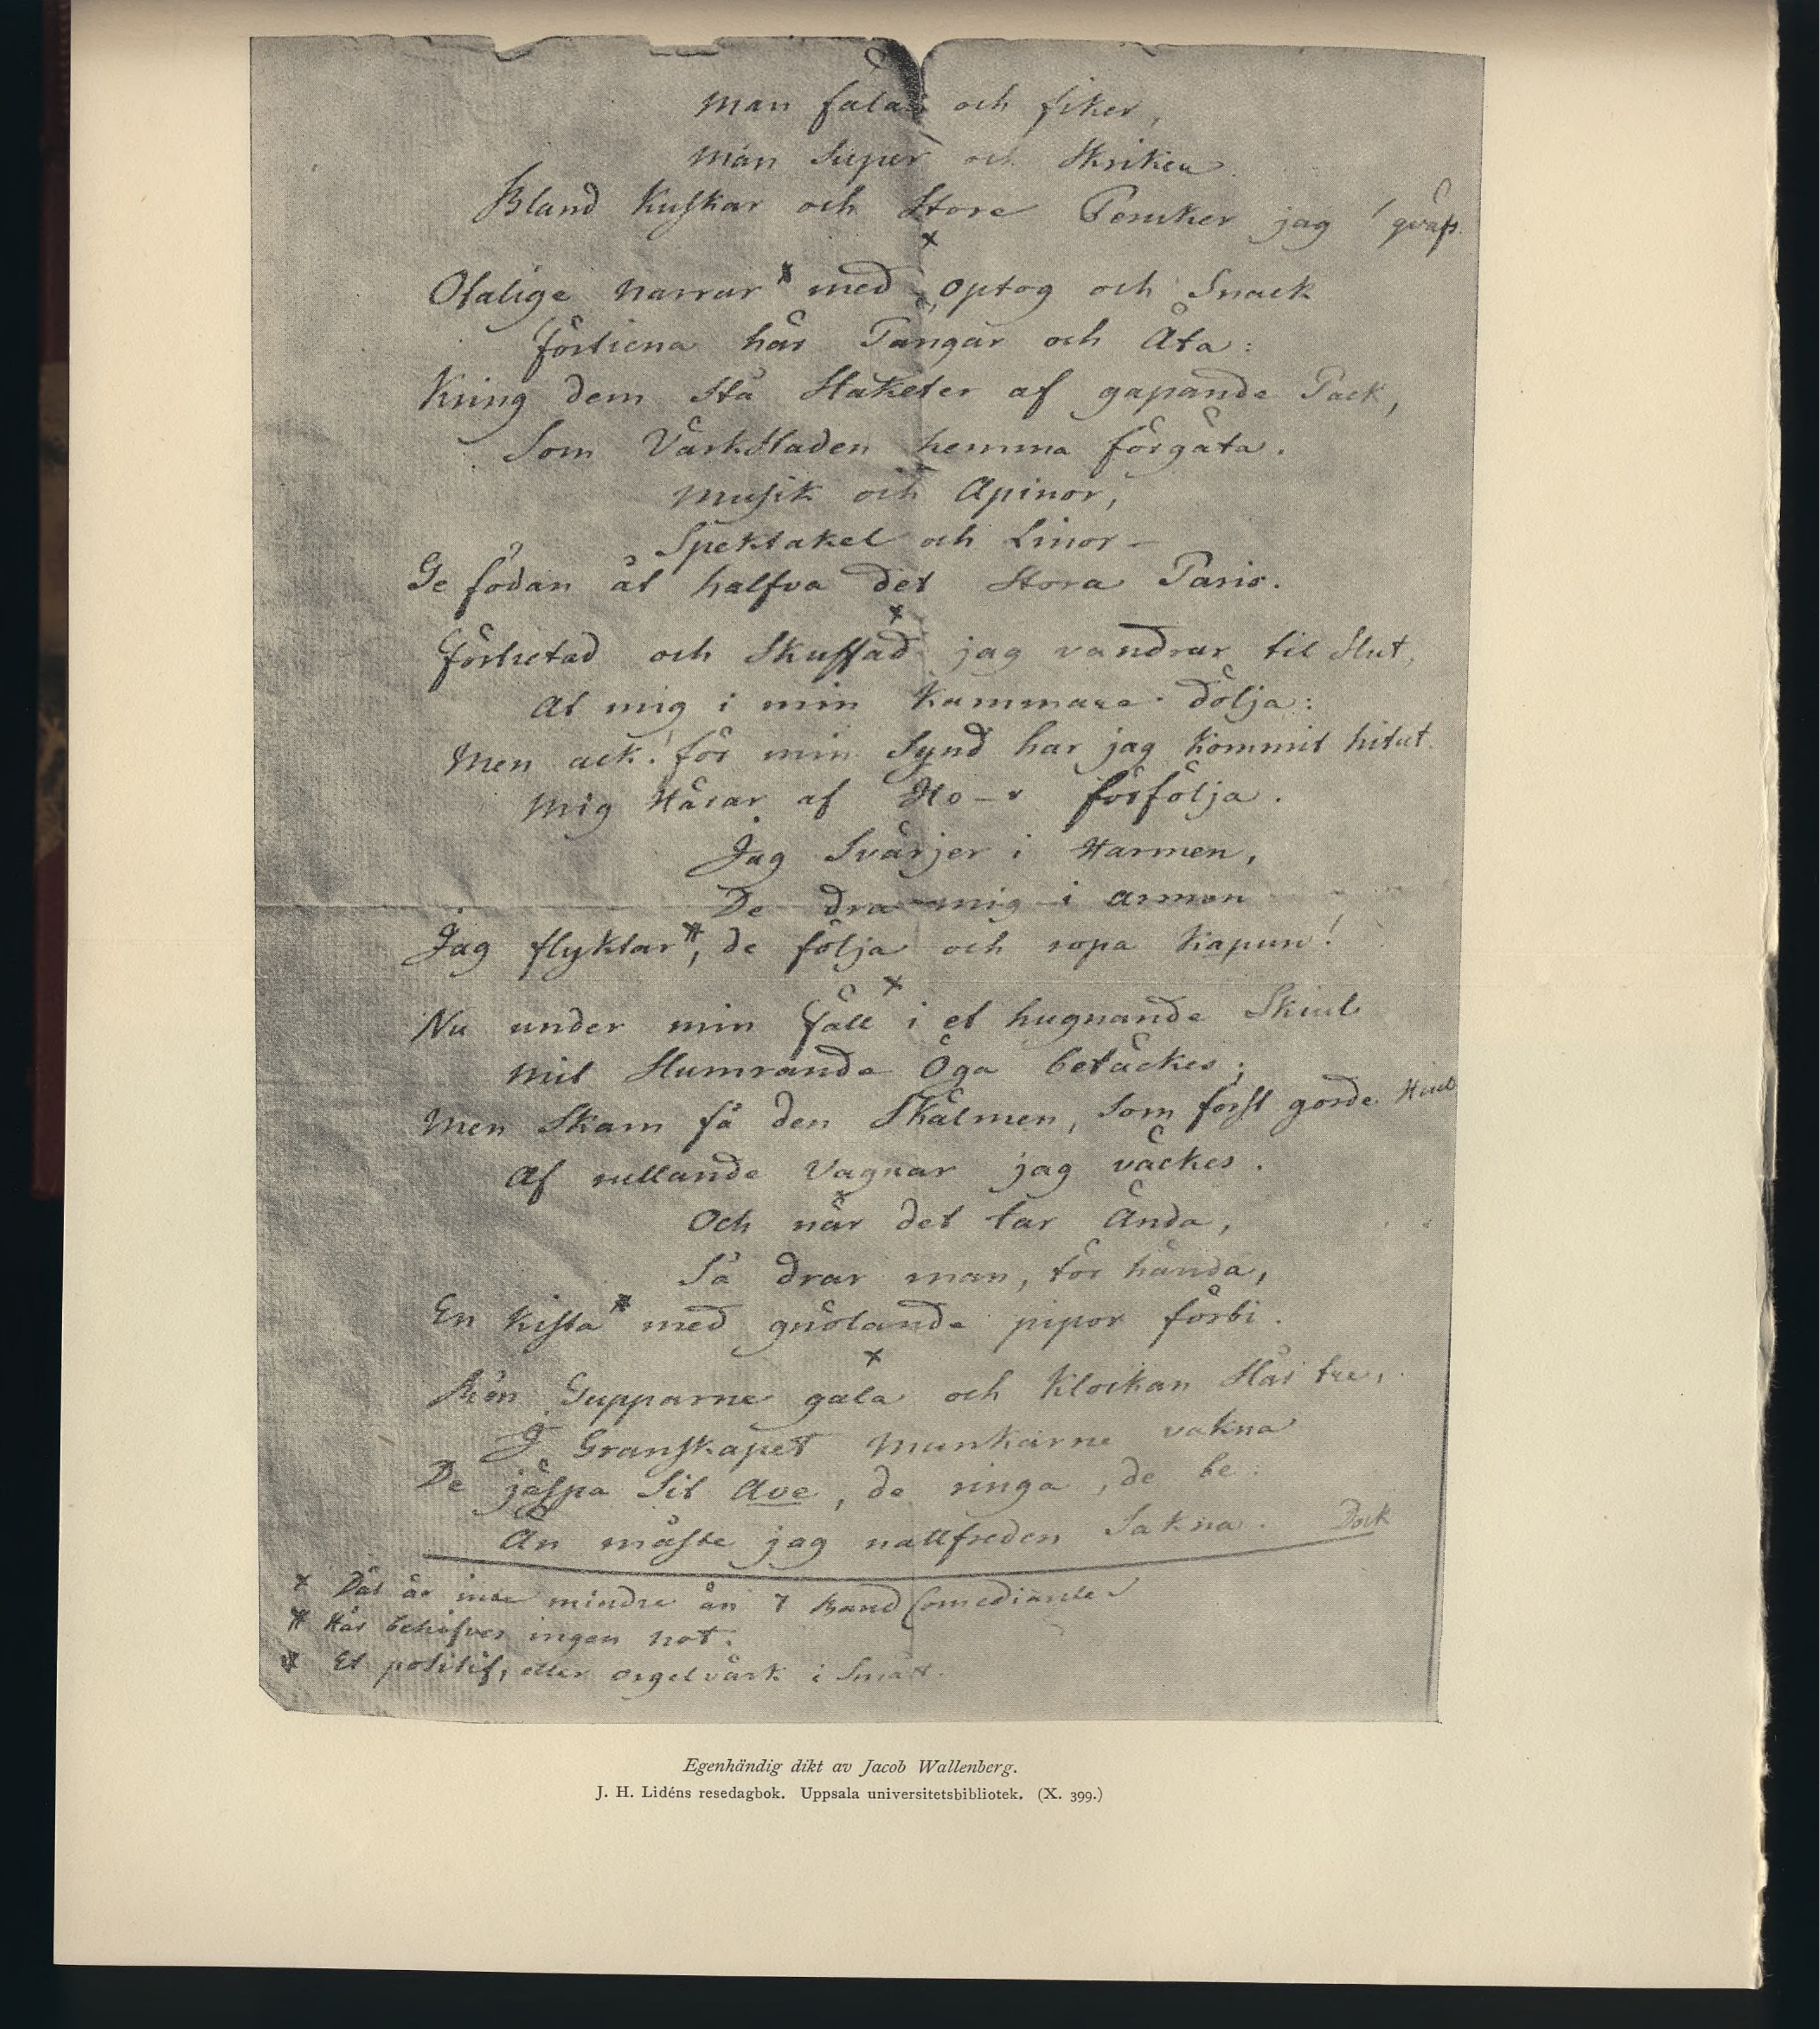 Man fälas och fiker,
Man Super och Skriker
Bland Kuskar och Store Peruker jag gväfs.
x
Otalige Narrar * med Optog och Snack
Förtiena här Pängar och Äta:
Kring dem stå Staketer af gapande Pack,
Som Värkstaden hemma förgäta.
Musik och Apinor,
Spektakel och Linor –
Ge födan åt halfva det Stora Paris.
x
Förtretad och Skuffad jag vandrar til Slut,
At mig i min Kammare dölja:
Men ack! för min Synd har jag kommit hitut.
Mig Härar af Ho–r förfölja.
Jag Svärjer i Harmen,
De dra mig i armen
Jag flyktar #, de följa och ropa Kapun!
x
Nu under min Fäll i et hugnande Skiul
Mit Slumrande Öga betäckes;
Men Skam få den Skälmen, Som först gorde Hiul
Af rullande Vagnar jag väckes.
Och när det tar Ända,
Så drar man, tör hända,
En Kista # med gnölande pipor förbi.
x
Ren Tupparne gala och Klockan Slår tre,
I Granskapet Munkarne vakna
De jäspa Sit Ave, de ringa, de be:
Än måste jag nattfreden Sakna. Dock
x Där är inte mindre än 7 Band Comedianter
# Här behöfves ingen not.
* Et positif, eller orgelvärk i Smått.
Egenhändig dikt av Jacob Wallenberg.
J. H. Lidéns resedagbok. Uppsala universitetsbibliotek. (X. 399.)